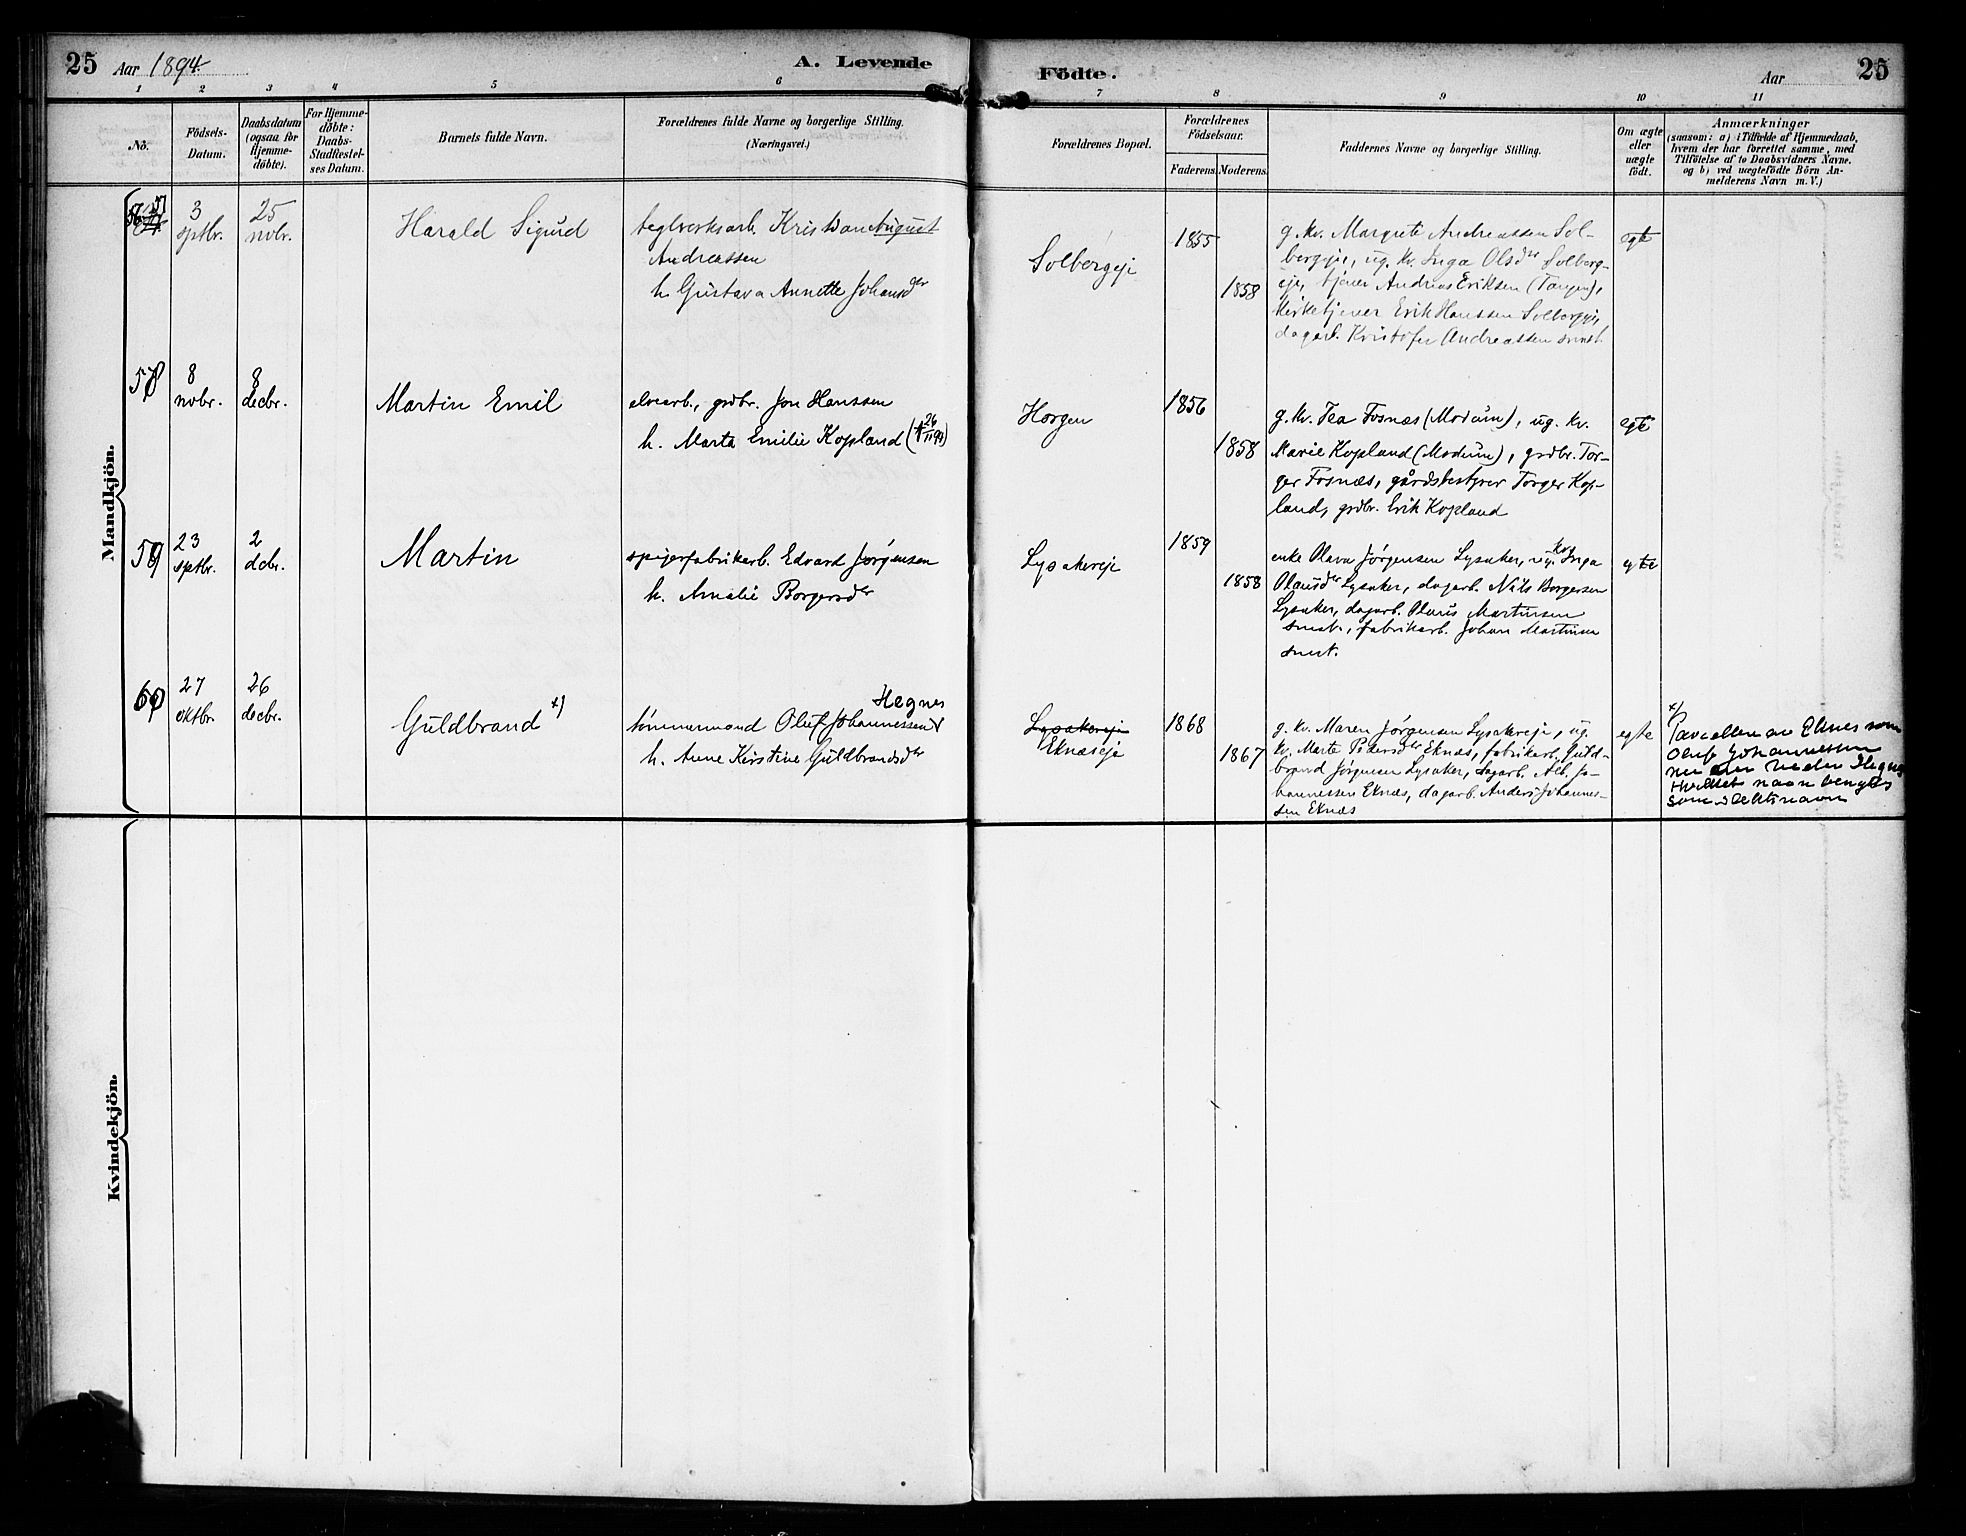 25 Aar 1894. A. Levende Födte. Aar 25
1 2 3 4 5 6 7 8 9 10 11
No.
Födsels-
Datum.
Daabsdatum
(ogsaa for
Hjemme-
döbte).
For Hjemme-
döbte:
Daabs-
Stadfæstel-
ses Datum.
Barnets fulde Navn.
Forældrenes fulde Navne og borgerlige Stilling.
(Næringsvei.)
Forældrenes Bopæl.
Forældrenes
Födselsaar.
Faderens. Moderens.
Faddernes Navne og borgerlige Stilling.
Om ægte
eller
uægte
födt.
Anmærkninger
(saasom: a) i Tilfælde af Hjemmedaab,
hvem der har forrettet samme, med
Tilföielse af to Daabsvidners Navne.
og b) ved uægtefödte Börn An-
melderens Navn m. V.)
Mandkjön.
57
3
sptbr.
25
nvbr.
Harald Sigurd
teglverksarb. Kristian August
Andreassen
h. Gustava Annette Johansdter
Solbergeje
1855
1858
g. kv. Margrete Andreassen Sol-
bergeje, ug. kv. Inga Olsdter Solberg-
eje, tjener Andreas Eriksen (Tangen),
kirketjener Erik Hanssen Solbergeje,
dagarb. Kristofer Andreassen smst.
egte
58
8
nvbr.
8
decbr.
Martin Emil
elvearb., grdbr. Jon Hanssen
h. Marta Emilie Kopland († 26/11 94)
Horgen
1856
1858
g. kv. Tea Fosnæs (Modum), ug. kv.
Marie Kopland (Modum), grdbr. Tor-
ger Fosnæs, gårdsbestyrer Torger Kop-
land, grdbr. Erik Kopland
egte
59
23
sptbr.
2
dcbr.
Martin
spigerfabrikarb. Edvard Jørgensen
h. Amalie Borgersdter
Lysakereje
1859
1858
enke Olava Jørgensen Lysaker, ug. kv. Inga
Olausdter Lysaker, dagarb. Nils Borgersen
Lysaker, dagarb. Olaus Martinsen
smst., fabrikarb. Johan Martinsen
smst.
egte
60
27
oktbr.
26
decbr.
Guldbrand x)
Hegnes
tømmermand Oluf Johannessen
h. Anne Kirstine Guldbrandsdter
Lysakereje
Eknæseje
1868
1867
g. kv. Maren Jørgensen Lysakereje, ug.
kv. Marte Pedersdter Eknæs, fabrikarb. Guld-
brand Jørgensen Lysaker, dagarb. Alb. Jo-
hannessen Eknæs, dagarb. Anders Johannes-
sen Eknæs
egte
x)
Parcellen av Eknes som
Oluf Johannessen
nu eier heder Hegnes
Hvilket navn benyttes
som slektsnavn
Kvindekjön.